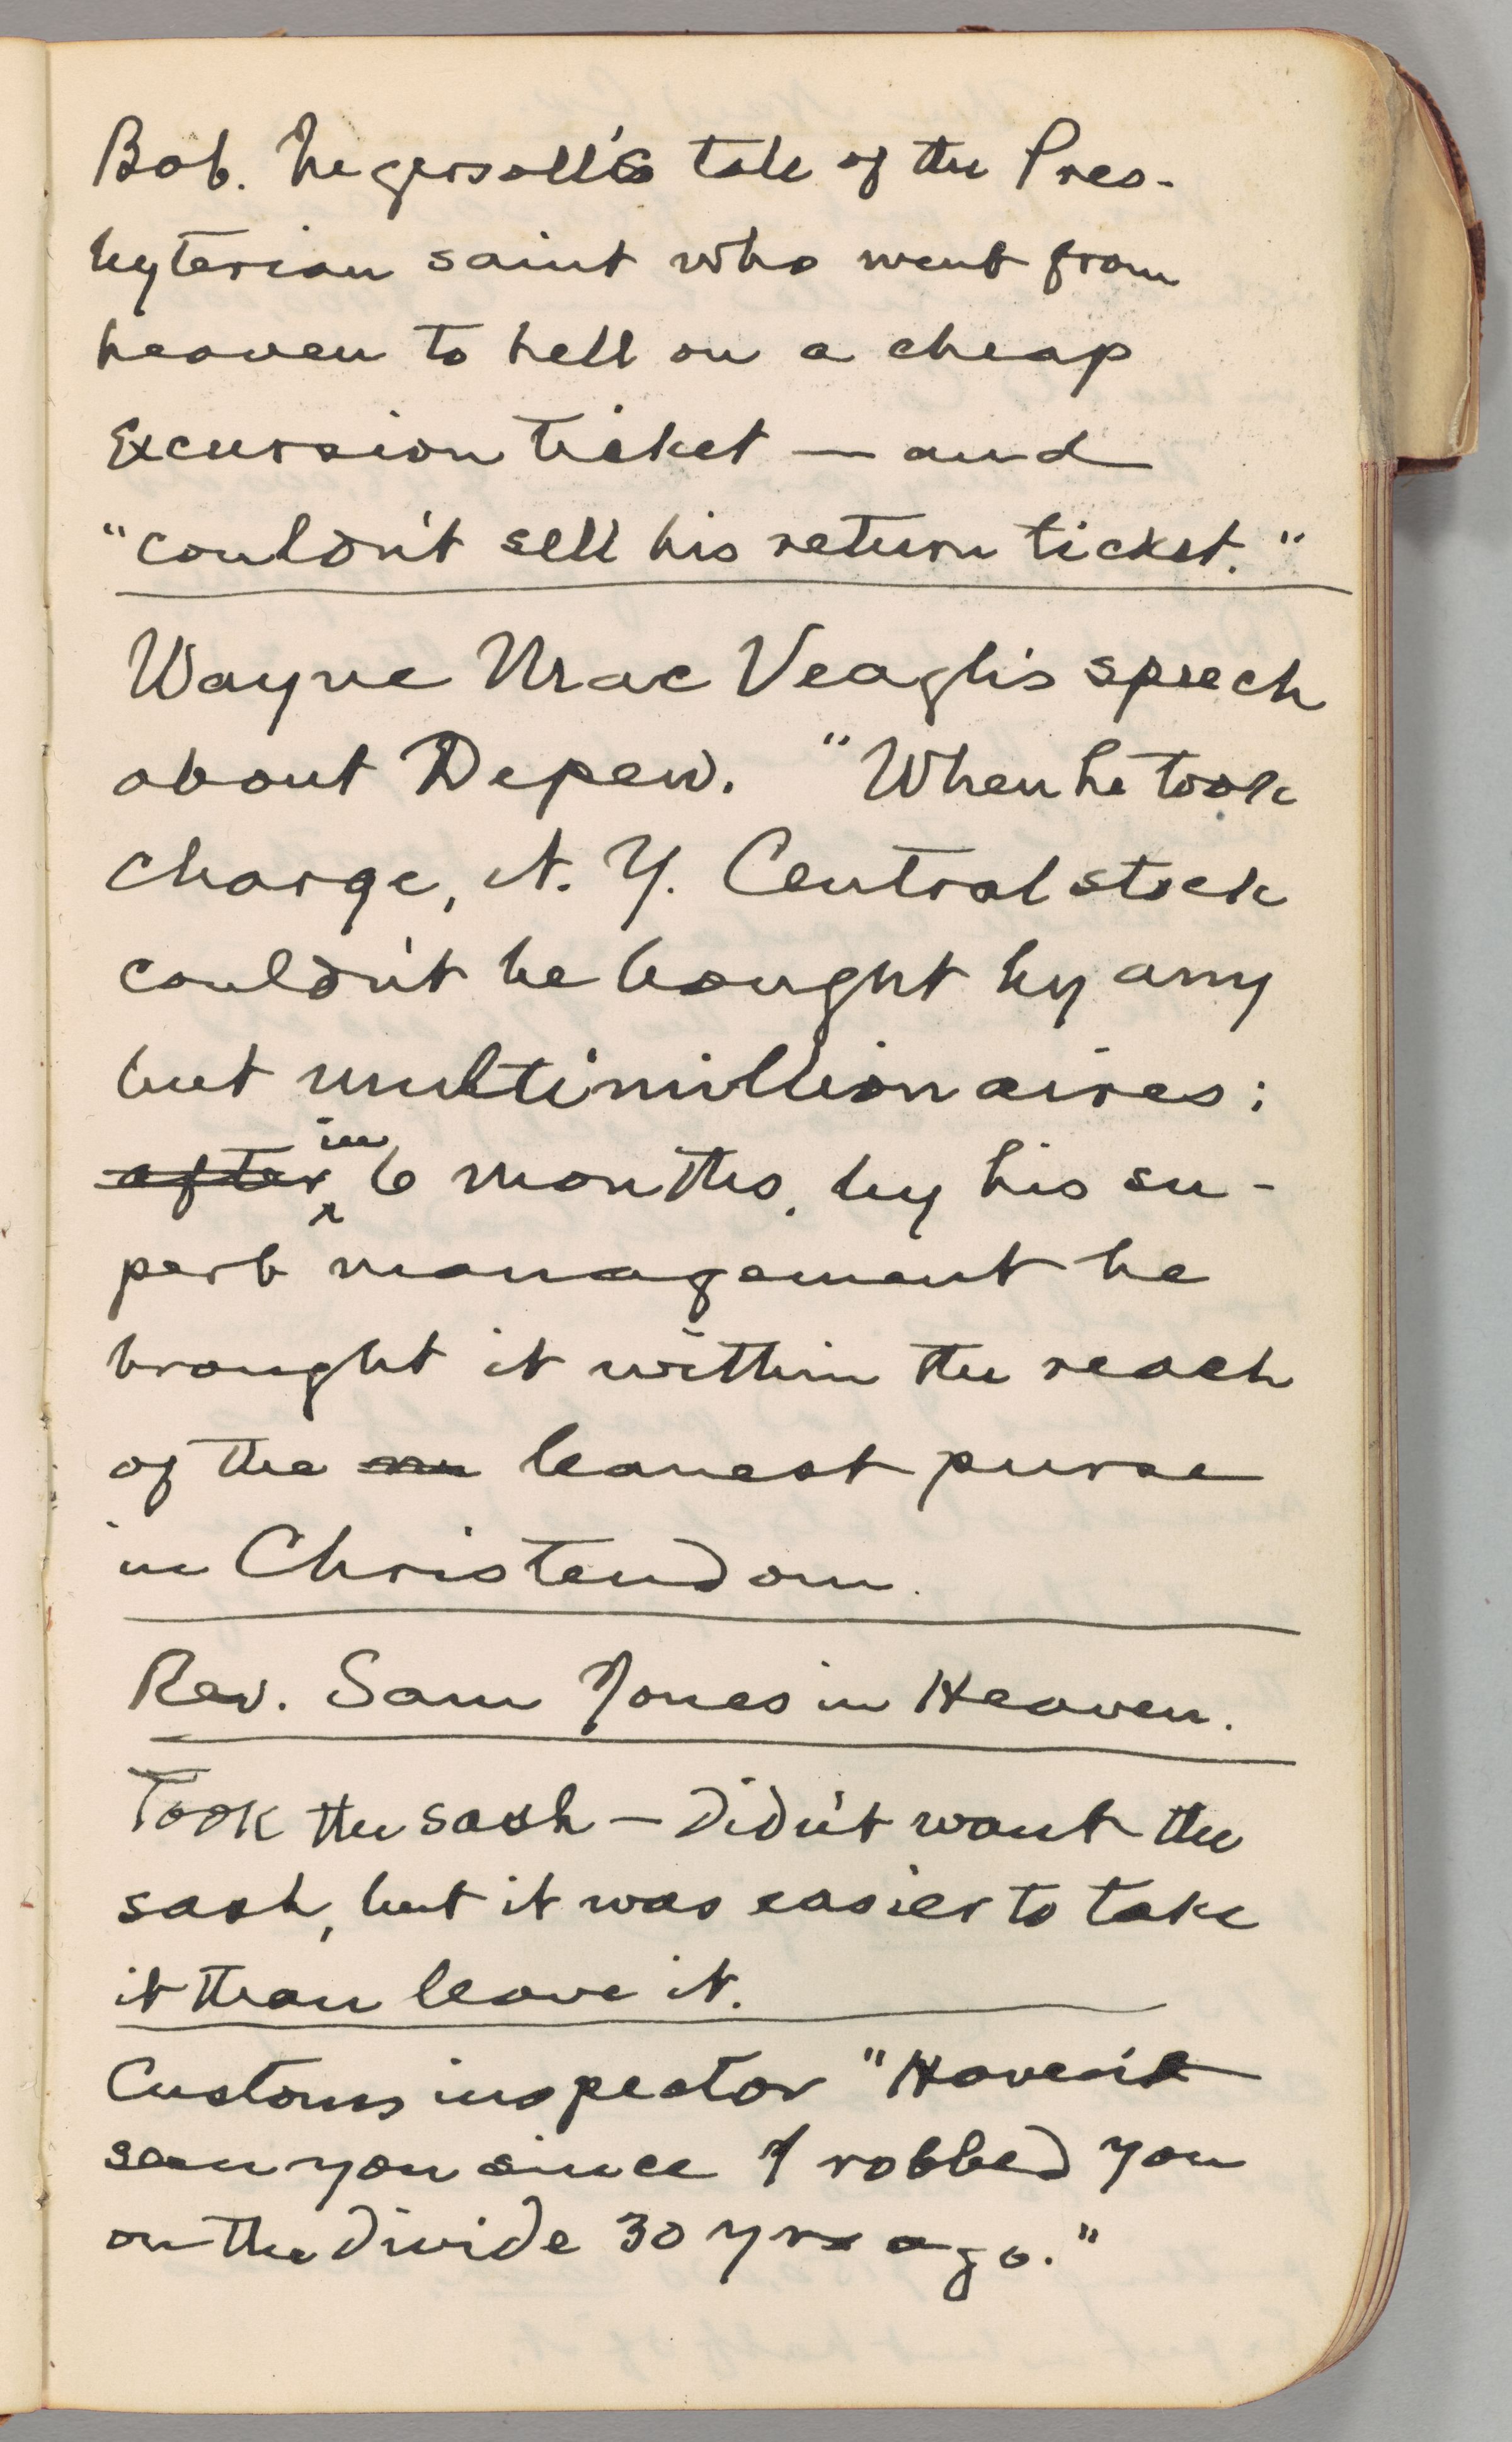 Bob. Ingersoll's tale of the Pres-
byterian saint who went from
heaven to hell on a cheap
Excursion ticket — and
"couldn't sell his return ticket."
Wayne MacVeagh's speech
about Depew. "When he took
charge, N. Y. Central stock
couldn't be bought by any
but multimillionaires:
after in 6 months, by his su-
perb management he
brought it within the reach
of the leanest purse
in Christendom.
Rev. Sam Jones in Heaven.
Took the sash — didn't want the
sash, but it was easier to take
it than leave it.
Customs inspector "Haven't
seen you since I robbed you
on the divide 30 yrs ago."